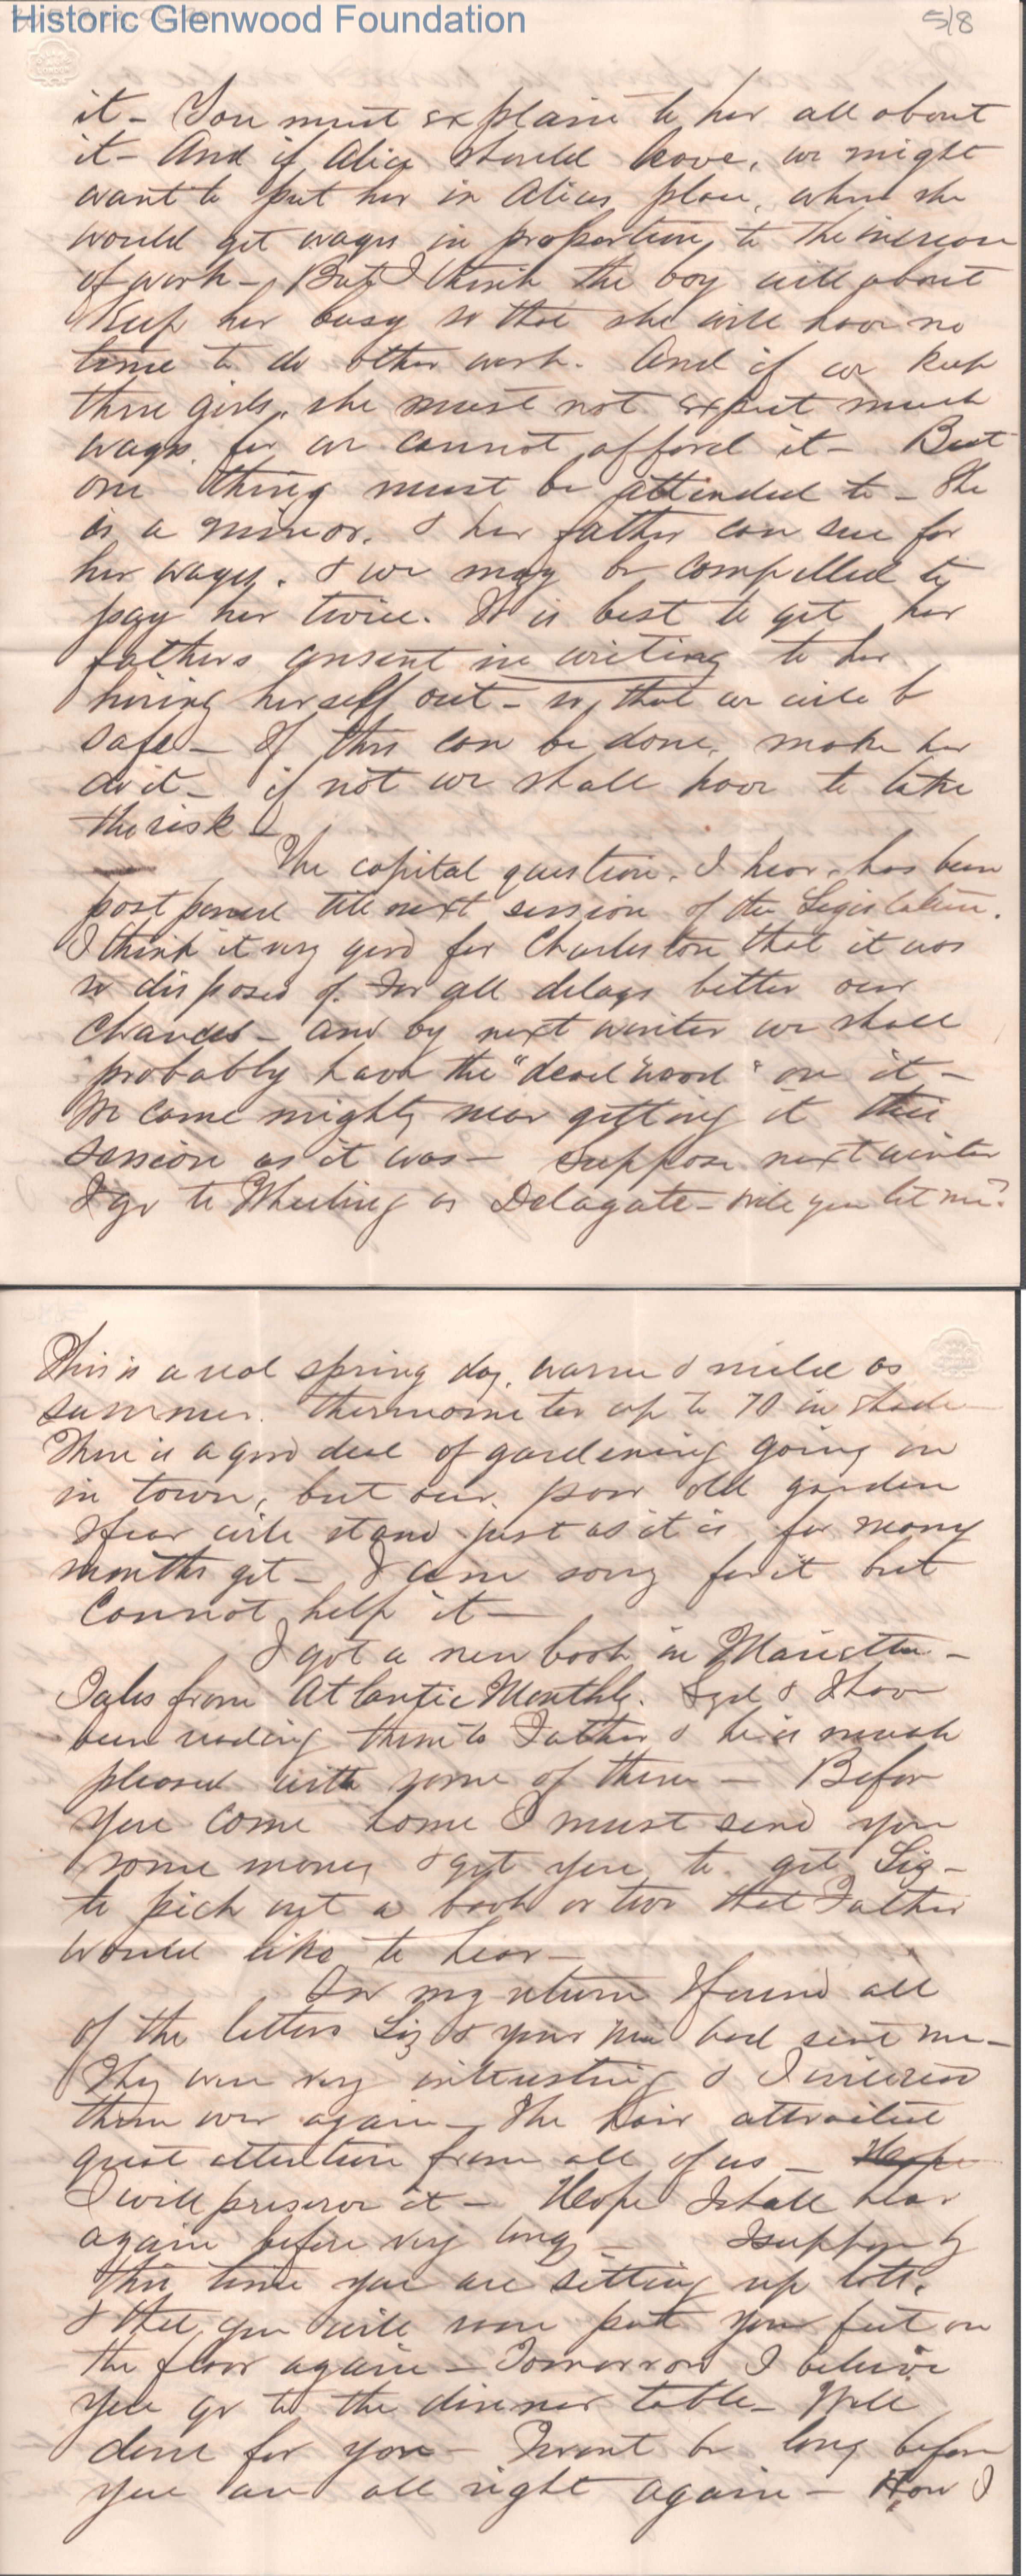 Historic Glenwood Foundation
5/8
it - You must explain to her all about
it - And if Alice should leave, we might
want to put her in Alices place, when she
would get wages in proportion, to the increase
of work - But I think the boy will about
Keep her busy so that she will have no
time to do other work. And if we keep
three girls, she must not expect much
wages, for we cannot afford it - But
one thing must be attended to - She
is a minor, & her father can sue for
her wages, & we may be compelled to
pay her twice. It is best to get her
fathers consent in writing to her
hiring herself out - so, that we will be
safe - If this can be done, make her
do it - if not we shall have to take
the risk -
The capital question, I hear, has been
postponed till next session of the Legislature.
I think it very good for Charleston that it was
so disposed of. For all delays better our
chances - and by next winter we shall
probably have the "dead wood" on it -
We came mighty near getting it this
session as it was - Suppose next winter
I go to Wheeling as Delagate - will you let me?
This is a real spring day, warm & mild as
summer. thermometer up to 70 in shade
There is a good deal of gardening going on
in town, but our poor old garden
I fear will stand just as it is for many
months yet - I am sorry for it but
cannot help it -
I got a new book in Marietta -
Tales from Atlantic Monthly. Syd & I have
been reading them to Father & he is much
pleased with some of them - Before
you come home I must send you
some money & get you to get Liz -
to pick out a book or two that Father
would like to hear -
On my return I found all
of the letters Liz & your Ma had sent me -
They were very interesting & I
them over again - The hair attracted
great attention from all of us -
I will preserve it - Hope I shall hear
again before very long - I suppose by
this time you are sitting up lots,
& that you will soon put your feet on
the floor again - Tomorrow I believe
you go to the dinner table - Well
done for you - Twont be long before
you are all right again - How I